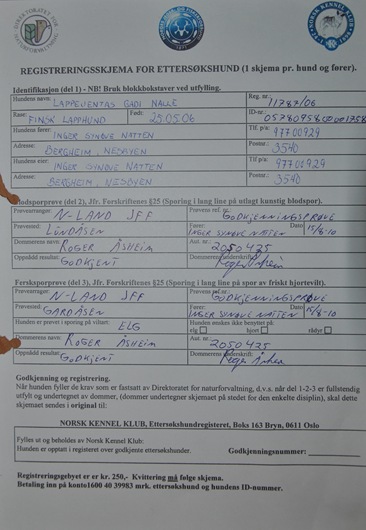 DIREKTORATET FOR NATURFORVALTNING
1871
NORSK KENNEL KLUB
REGISTRERINGSSKJEMA FOR ETTERSØKSHUND (1 skjema pr. hund og fører).
Identifikasjon (del 1) - NB! Bruk blokkbokstaver ved utfylling.
Hundens navn: LAPPEVENTAS GADI NALLE Reg. nr. 11787/06
Rase: FINSK LAPPHUND Født: 25.05.06 ID-nr.
Hundens fører: INGER SYNØVE NATTEN Tlf p/a: 97700929
Adresse: BERGHEIM, NESBYEN Postnr.: 3540
Hundens eier: INGER SYNØVE NATTEN Tlf p/a: 97700929
Adresse: BERGHEIM, NESBYEN Postnr.: 3540
Blodsporprøve (del 2), Jfr. Forskriftenes §25 (Sporing i lang line på utlagt kunstig blodspor).
Prøvearrangør: N-LAND JFF Prøvens ref. nr. GODKJENNINGSPRØVE
Prøvested: LUNDÅSEN Fører: INGER SYNØVE NATTEN Dato: 15/8-10
Dommerens navn: ROGER ÅSHEIM Aut. nr.: 2050425
Oppnådd resultat: GODKJENT Dommerens underskrift:
Fersksporprøve (del 3), Jfr. Forskriftenes §25 (Sporing i lang line på spor av friskt hjortevilt).
Prøvearrangør: N-LAND JFF Prøvens ref. nr. GODKJENNINGSPRØVE
Prøvested: GARDÅSEN Fører: INGER SYNØVE NATTEN Dato: 15/8-10
Hunden er prøvet i sporing på viltart: ELG Hunden ønskes ikke benyttet på: elg hjort rådyr
Dommerens navn: ROGER ÅSHEIM Aut. nr. 2050425
Oppnådd resultat: GODKJENT Dommerens underskrift:
Godkjenning og registrering.
Når hunden fyller de krav som er fastsatt av Direktoratet for naturforvaltning, d.v.s. når del 1-2-3 er fullstendig
utfylt og undertegnet av dommer, (dommer undertegner skjemaet på stedet for den enkelte disiplin), skal dette
skjemaet sendes i original til:
NORSK KENNEL KLUB, Ettersøkshundregisteret, Boks 163 Bryn, 0611 Oslo
Fylles ut og beholdes av Norsk Kennel Klub:
Hunden er opptatt i registeret over godkjente ettersøkshunder. Godkjenningsnummer:
Registreringsgebyret er er kr. 250,- Kvittering må følge skjema.
Betaling inn på konto1600 40 39983 mrk. ettersøkshund og hundens ID-nummer.